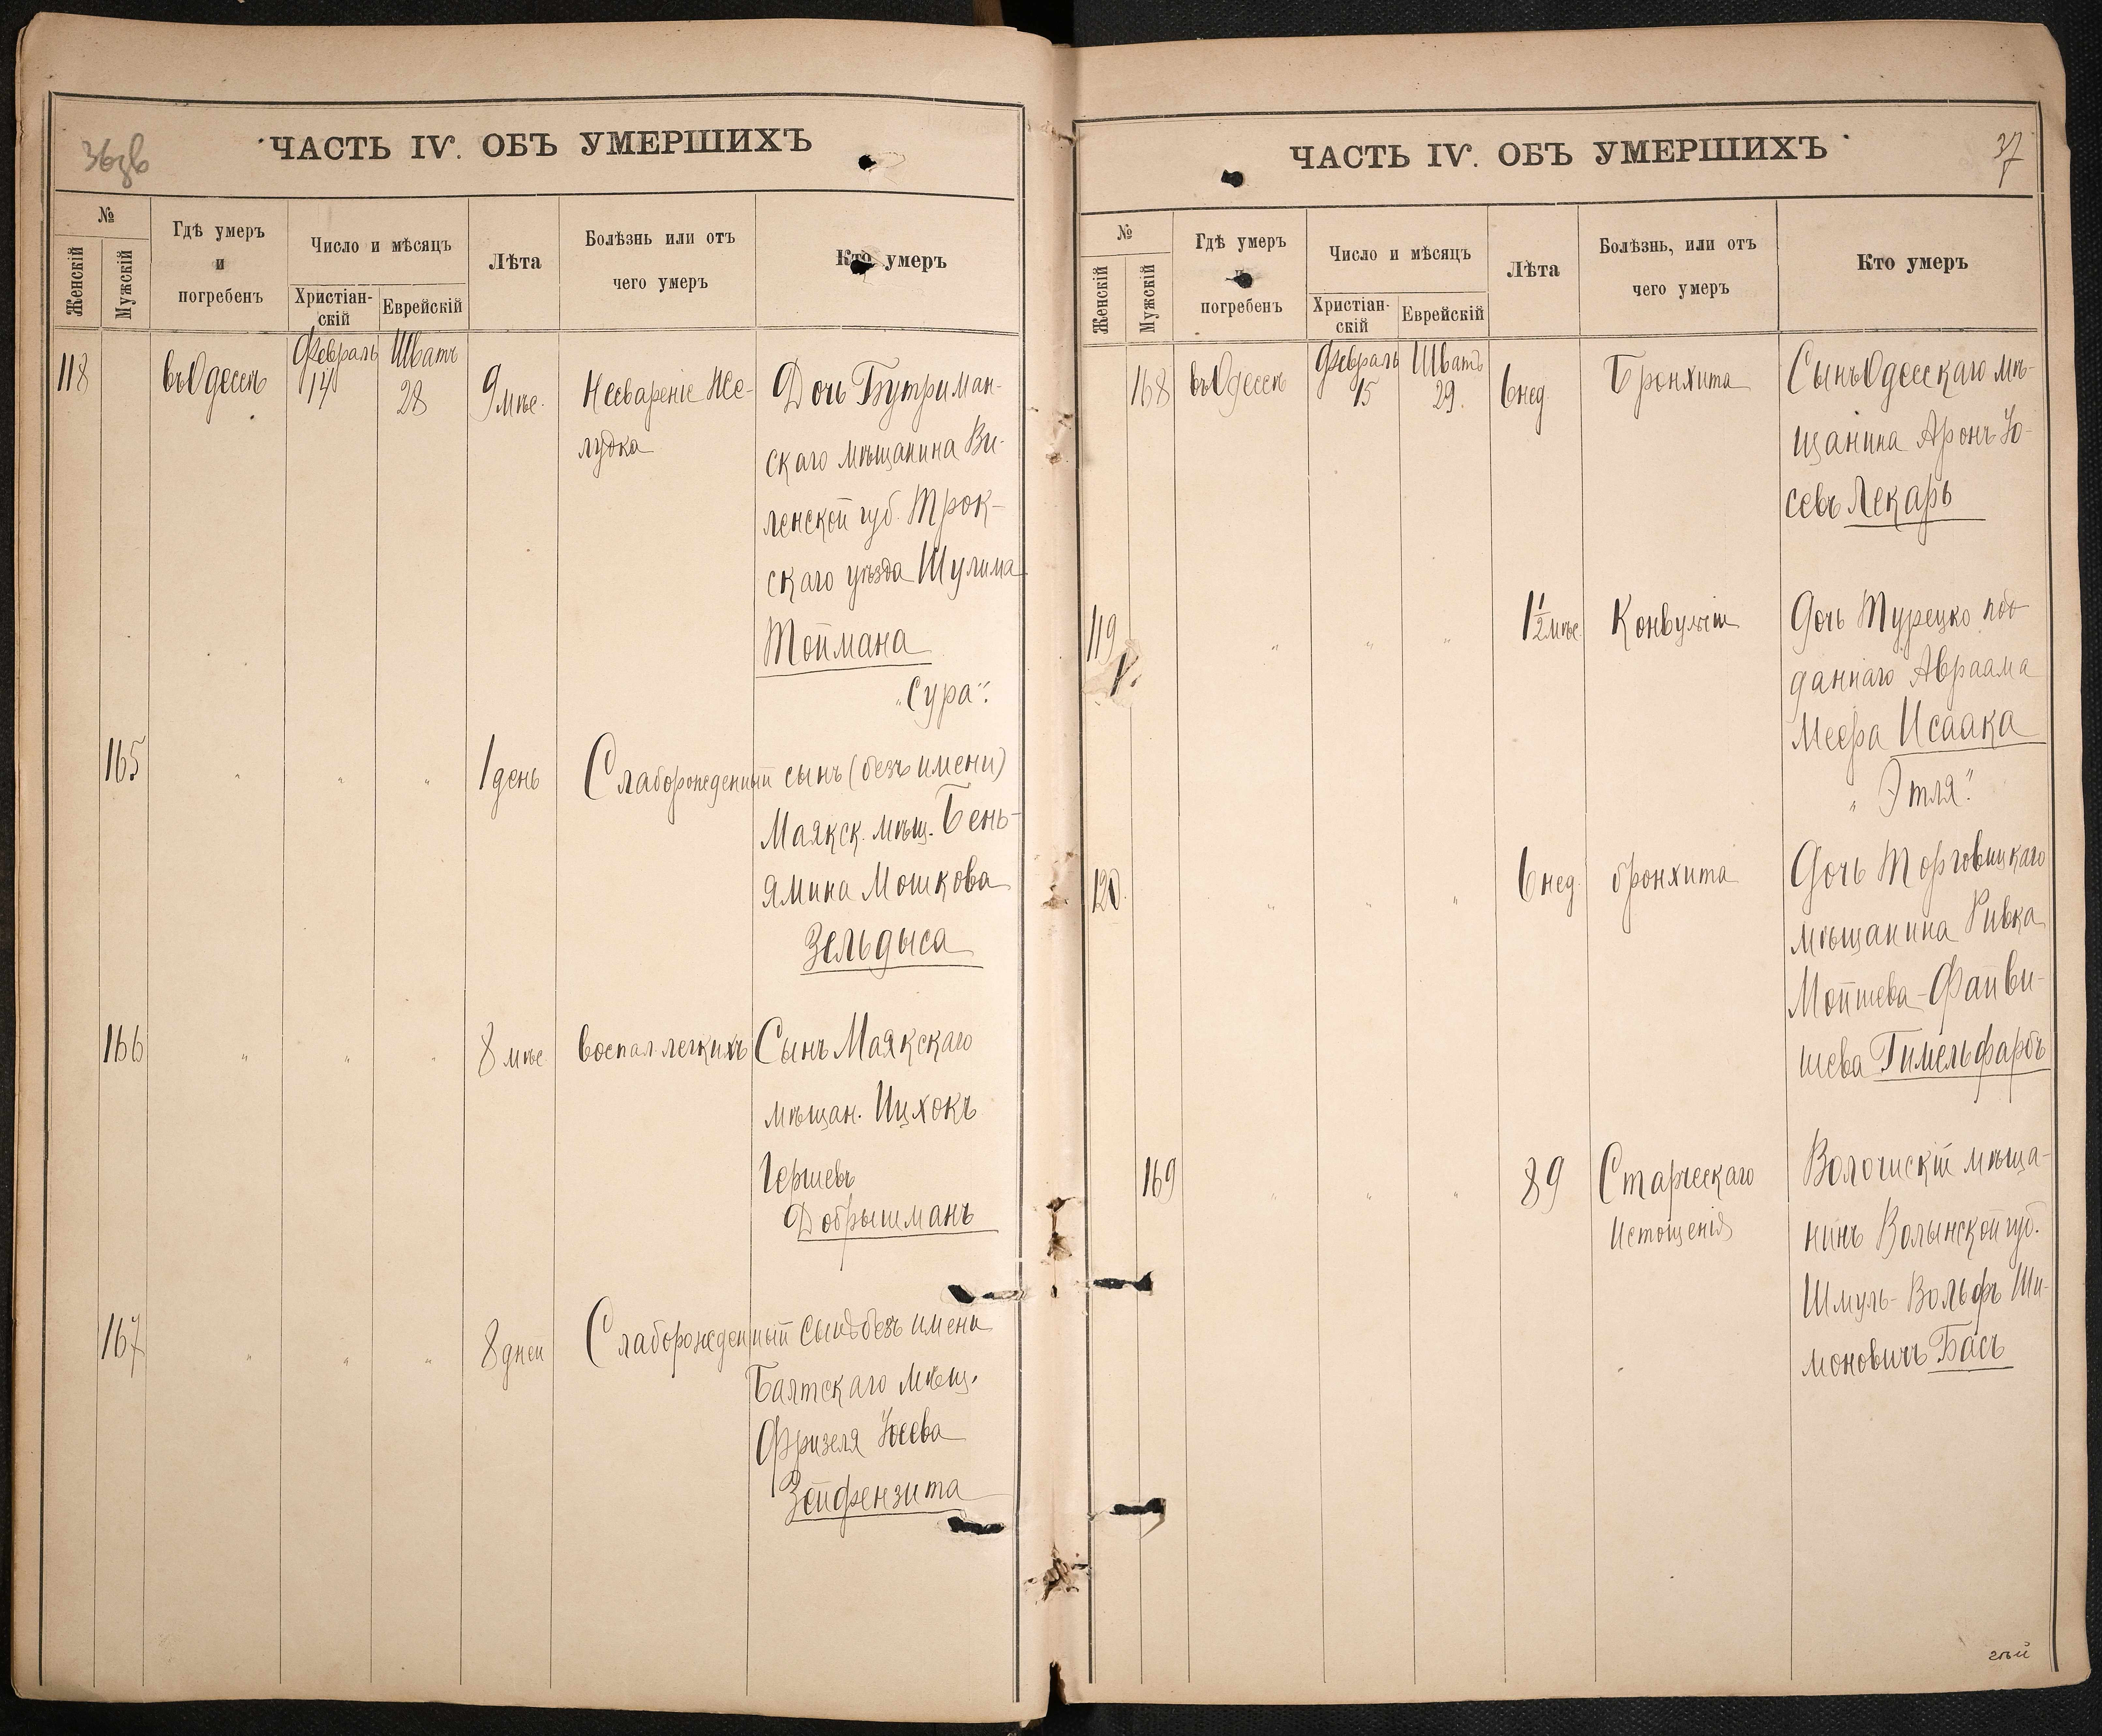 36зв
ЧАСТЬ IV. ОБЪ УМЕРШИХЪ
№
Женскій
Мужскій
Гдѣ умеръ
и
погребенъ
Число и мѣсяцъ
Христіан-
скій
Еврейскій
Лѣта
Болѣзнь или отъ
чего умеръ
Кто умеръ
118
въ Одессѣ
Февраль
14
Шватъ
28
9 мѣс.
Несвареніе Же-
лудка
Дочь Бутриман-
скаго мѣщанина Ви-
ленской губ. Трок-
скаго уѣзда Шулима
Тоймана
"Сура".
165
" " "
1 день
Слаборожденный сынъ (безъ имени)
Маякск. мѣщ. Бень-
ямина Мошкова
Зельдыса
166
" " "
8 мѣс
воспал. легкихъ
Сынъ Маякскаго
мѣщан. Ицхокъ
Гершевъ
Добрышманъ
167
" " "
8 дней
Слаборожденный сынъ безъ имени
Балтскаго мѣщ.
Фризеля Юсева
Зейфензита
37
ЧАСТЬ IV. ОБЪ УМЕРШИХЪ
№
Женскій
Мужскій
Гдѣ умеръ
и
погребенъ
Число и мѣсяцъ
Христіан-
скій
Еврейскій
Лѣта
Болѣзнь, или отъ
чего умеръ
Кто умеръ
168
въ Одессѣ
Февраль
15
Шватъ
29.
6 нед.
Бронхита
Сынъ Одесскаго мѣ-
щанина Аронъ Іо-
севъ Лекарь
119
" " "
1 1/2 мѣс.
Конвульсіи
Дочь Турецко под-
даннаго Авраама
Меера Исаака
"Этля".
120.
" " "
6 нед.
бронхита
Дочь Торговицкаго
мѣщанина Ривка
Мойшева-Файви-
шева Гимельфарбъ
169
" " "
89
Старческаго
Истощенія
Волочискій мѣща-
нинъ Волынской губ.
Шмуль-Вольфъ Ши-
моновичъ Басъ